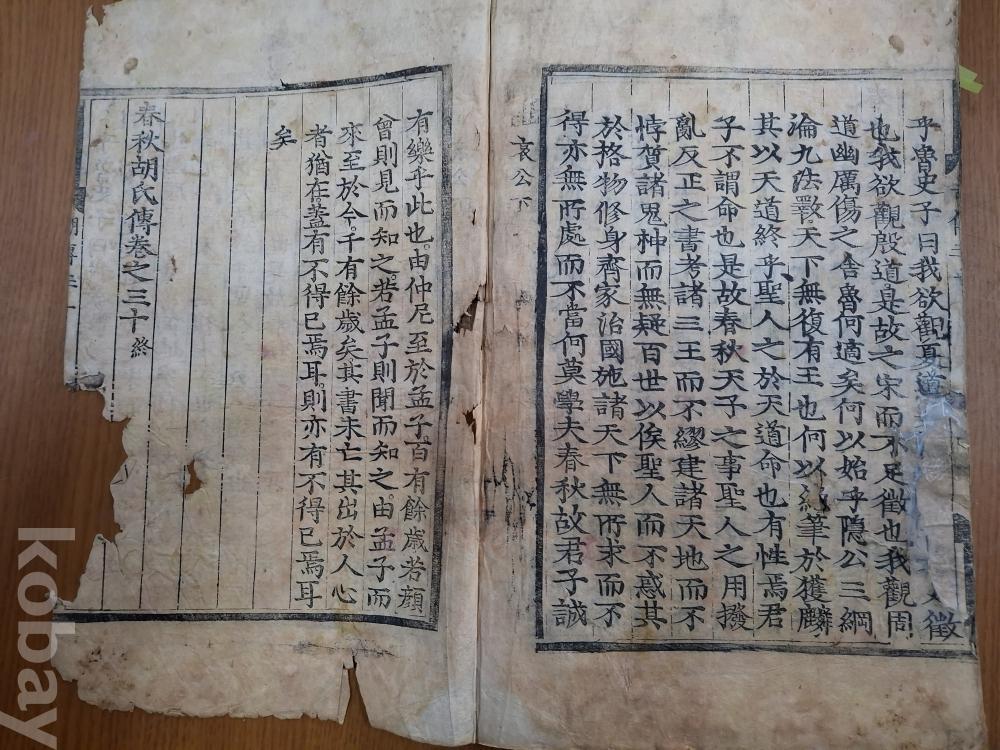 乎魯史子曰我欲觀夏道
徵
也我欲觀殷道是故之宋而不足徵也我觀周
道幽厲傷之舍魯何適矣何以始乎隱公三綱
淪九法斁天下無復有王也何以絕筆於獲麟
其以天道終乎聖人之於天道命也有性焉君
子不謂命也是故春秋天子之事聖人之用撥
亂反正之書考諸三王而不繆建諸天地而不
悖質諸鬼神而無疑百世以俟聖人而不惑其
於格物修身齊家治國施諸天下無所求而不
得亦無所處而不當何莫學夫春秋故君子誠
哀公下
有樂乎此也由仲尼至於孟子百有餘歲若顔
曾則見而知之若孟子則聞而知之由孟子而
來至於今千有餘歲矣其書未亡其出於人心
者猶在蓋有不得已焉耳則亦有不得已焉耳
矣
春秋胡氏傳卷之三十 終
kobay